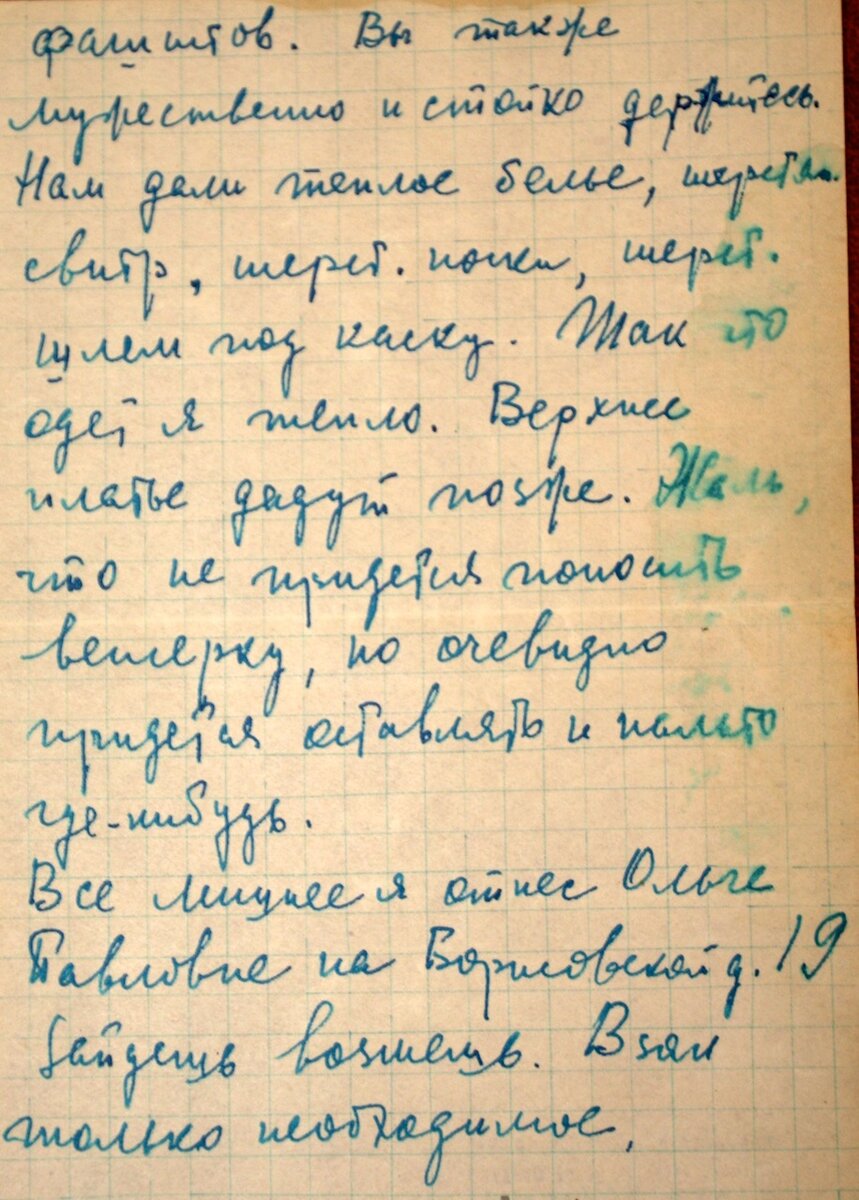 фашистов. Вы также
мужественно и стойко держитесь.
Нам дали теплое белье, шерстян.
свитр, шерст. носки, шерст.
шлем под каску. Так что
одет я тепло. Верхнее
платье дадут позже. Жаль,
что не придется поносить
венгерку, но очевидно
придется оставлять и пальто
где-нибудь.
Все лишнее я отнес Ольге
Павловне на Борисовской д. 19
Зайдешь возмешь. Взял
только необходимое,